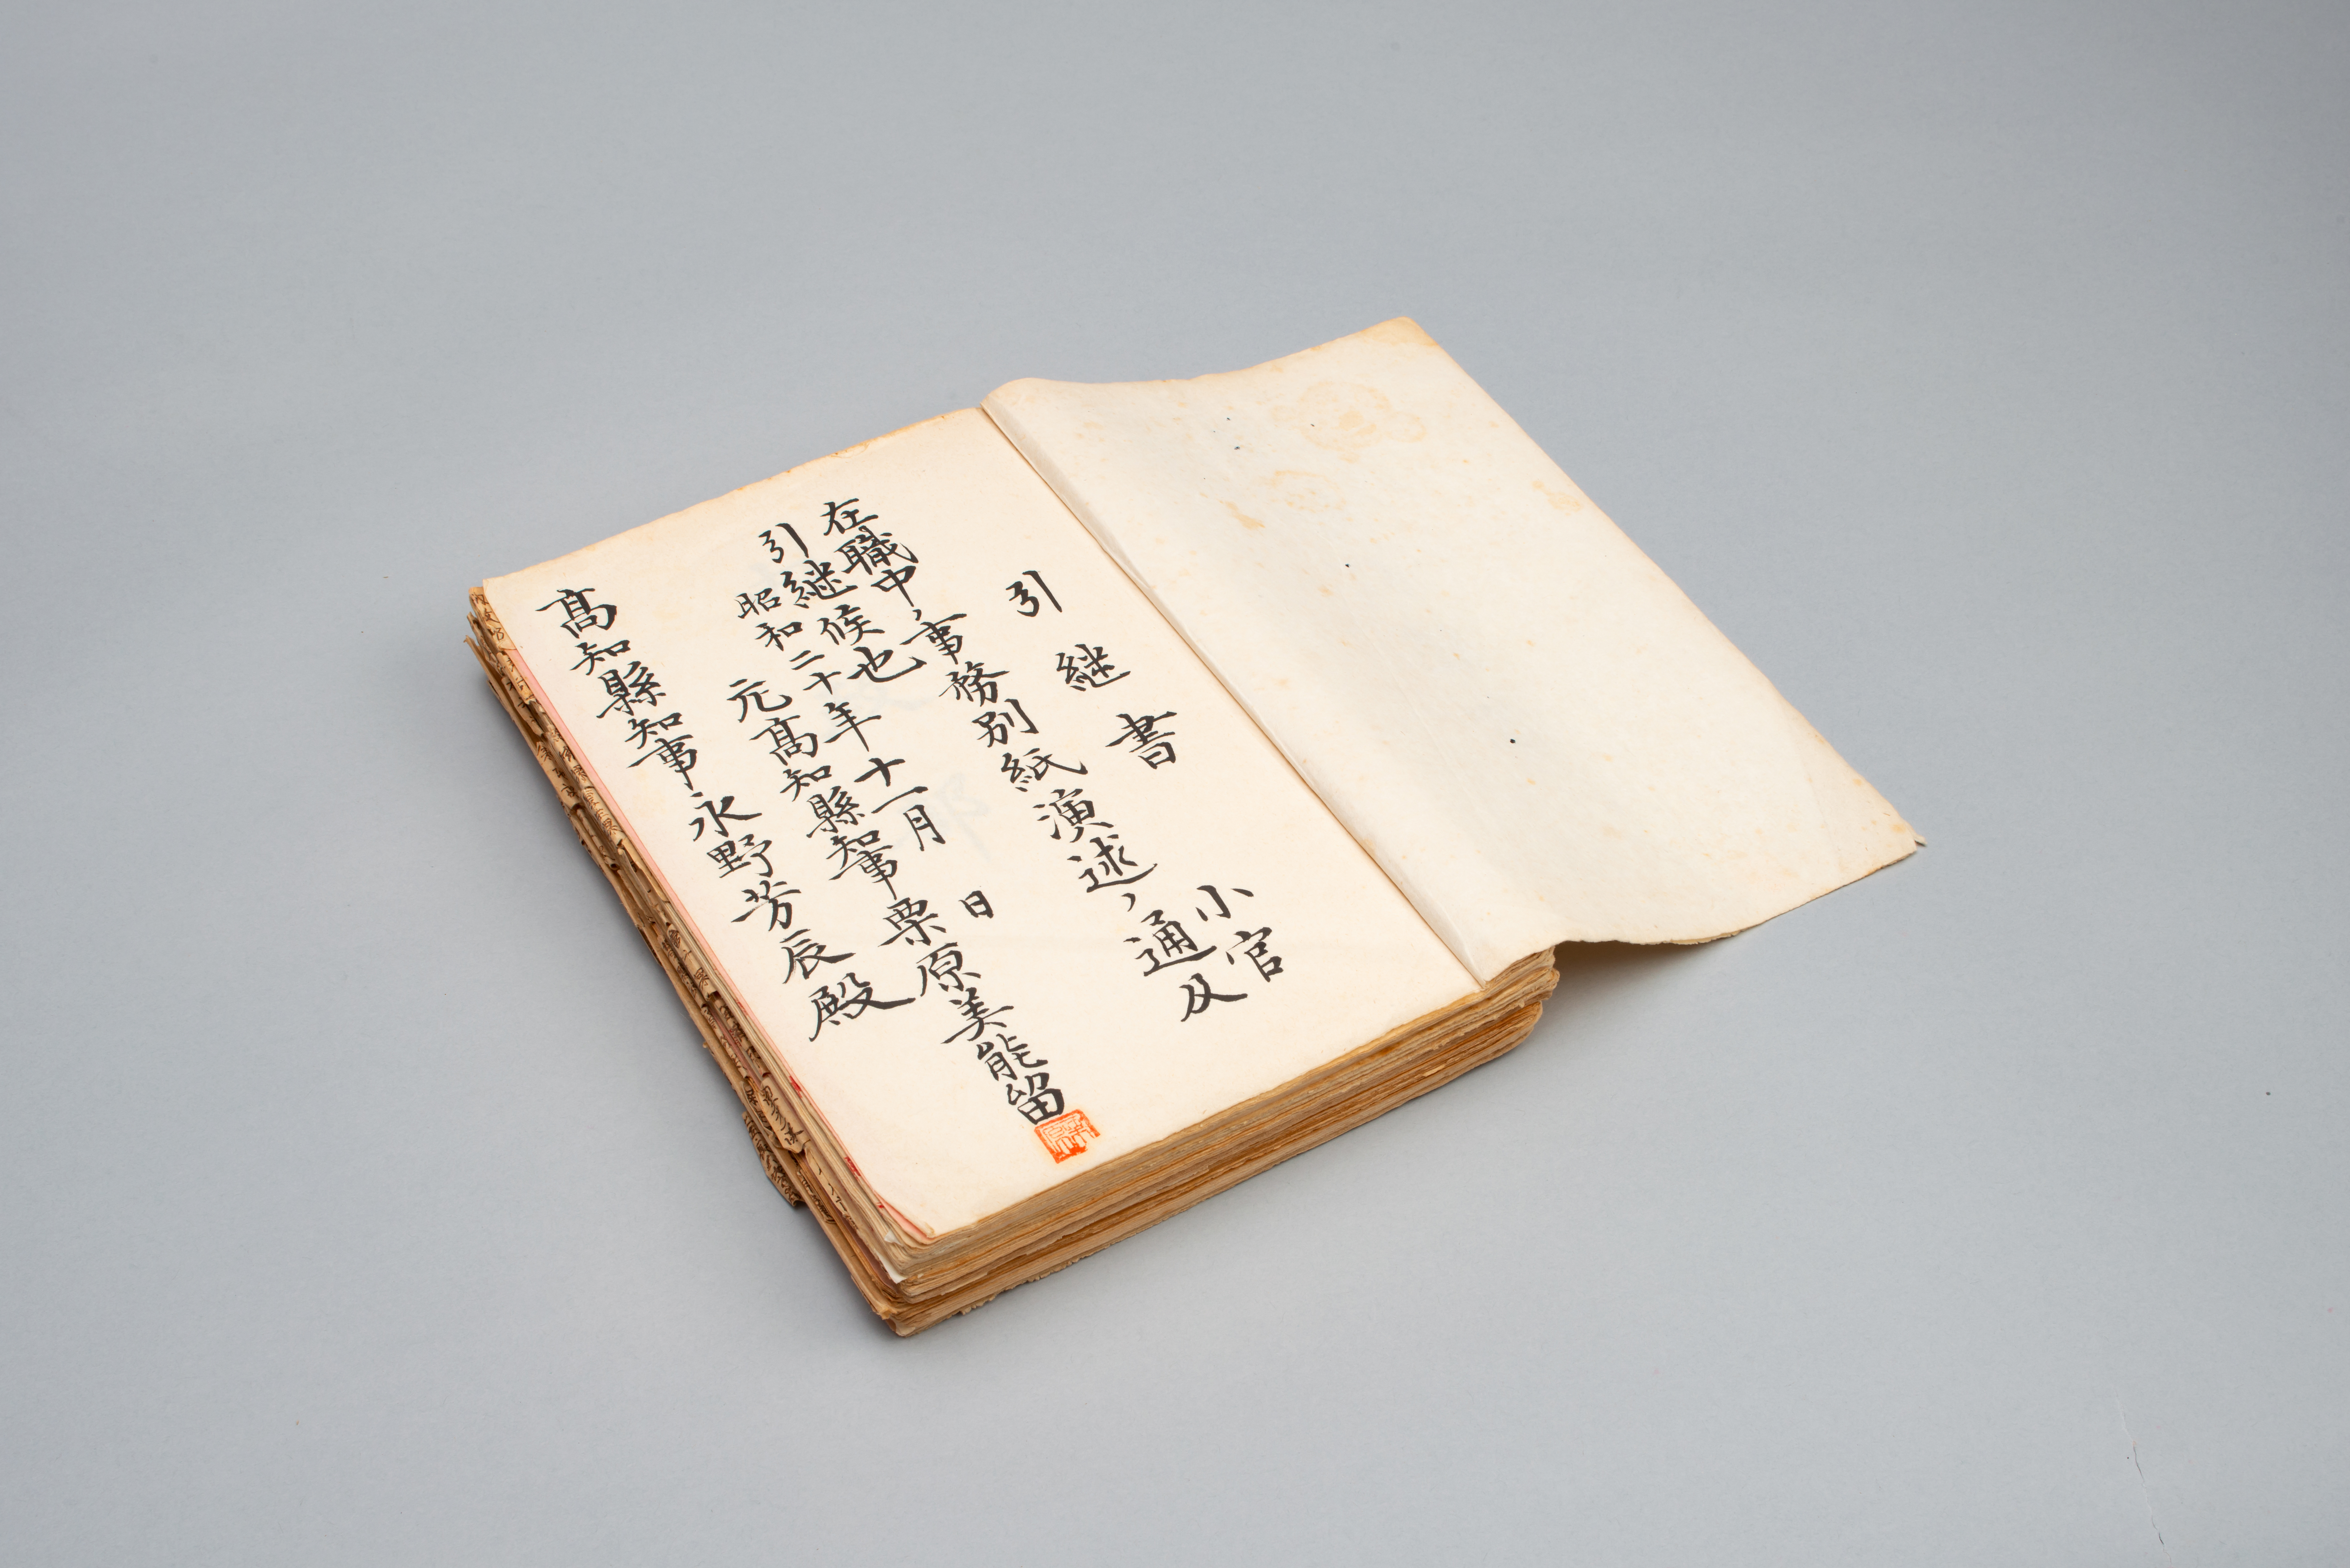 引継書
小官
在職中ノ事務別紙演述ノ通及
引継候也
昭和二十年十一月 日
元髙知縣知事栗原美能留
髙知縣知事永野芳辰殿